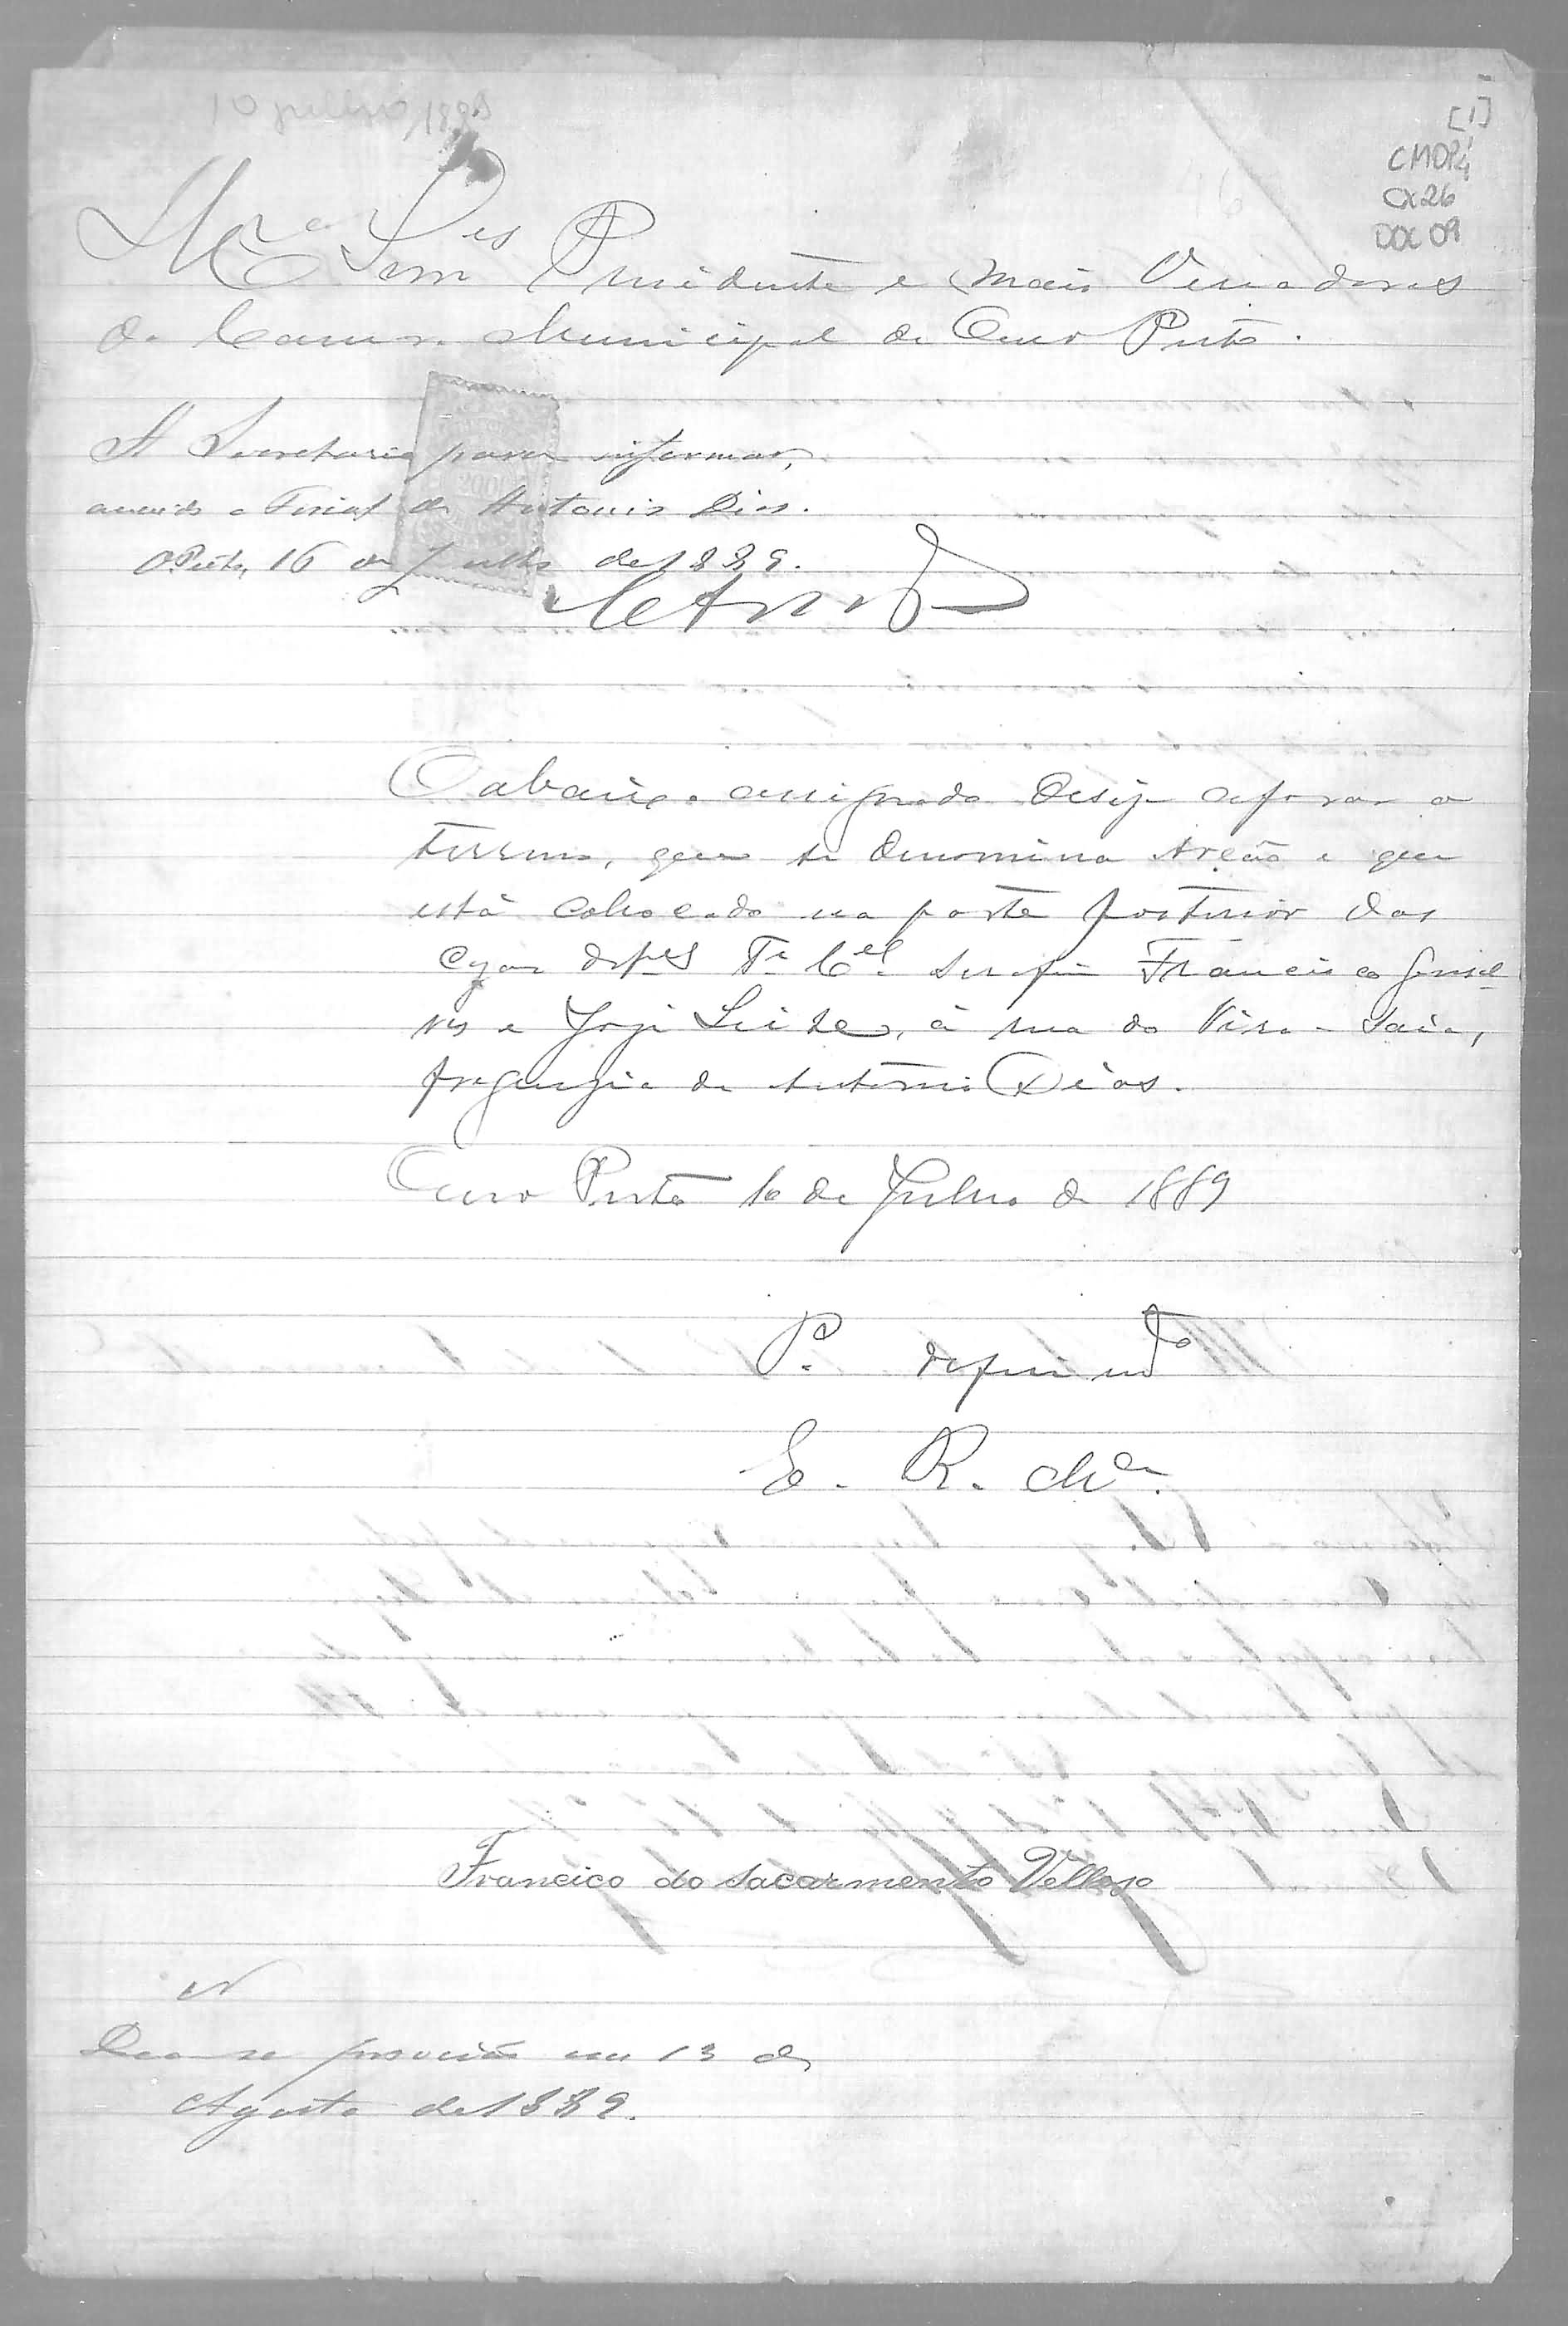 [1]
CMOP
CX26
DOC 09
Presidente e mais Vereadores
da Camara Municipal de Ouro Preto.
A Secretaria para informar,
ouvindo o Fiscal de Antonio Dias.
OPreto, 16 de Julho de 1889.
200
O abaixo assignado deseja aforar o
terreno, que se denomina Areão e que
está collocado na parte posterior das
cazas dos Te. Cel. Serafim Francisco Gonsal
ves e Jozé Leite, á rua do Vira-Saia,
freguezia de Antonio Dias.
Ouro Preto 10 de Julho de 1889
P. deferimto
E. R. Mce.
Francisco do Sacarmento Vellozo
Deu-se provisão em 13 de
Agosto de 1889.